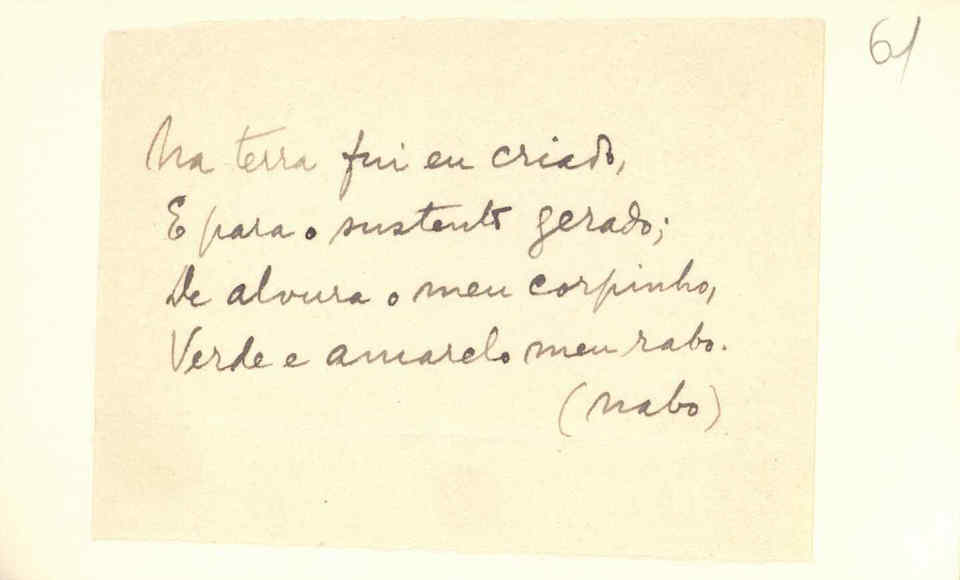 61
Na terra fui eu criado,
E para o sustento gerado;
De alvura o meu corpinho,
Verde e amarelo meu rabo.
(nabo)